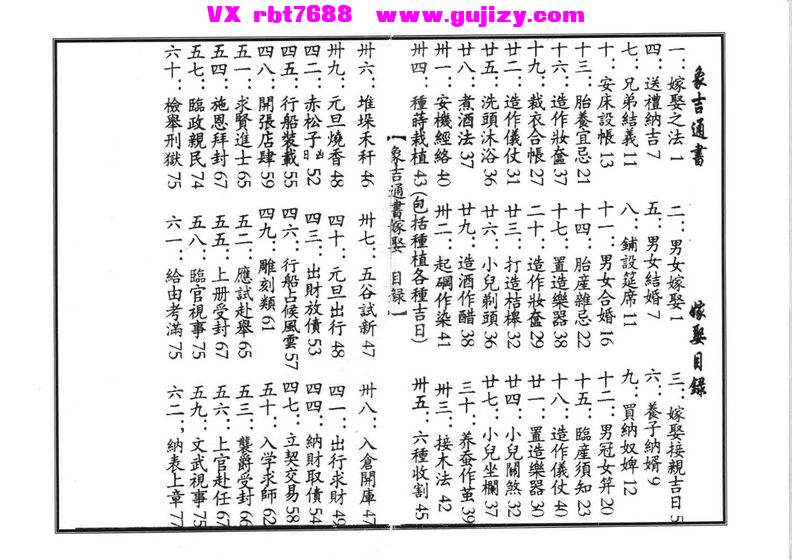 VX rbt7688 www.gujizy.com
象吉通書 嫁娶目錄
一：嫁娶之法 1 二：男女嫁娶 1 三：嫁娶接親吉日 5
四：送禮納吉 7 五：男女結婚 7 六：養子納婿 9
七：兄弟結義 11 八：鋪設筵席 11 九：買納奴婢 12
十：安床設帳 13 十一：男女合婚 16 十二：男冠女笄 20
十三：胎養宜忌 21 十四：胎產雜忌 22 十五：臨產須知 23
十六：造作妝奩 37 十七：置造樂器 38 十八：造作儀仗 40
十九：裁衣合帳 27 二十：造作妝奩 29 廿一：置造樂器 30
廿二：造作儀仗 31 廿三：打造桔槔 32 廿四：小兒關煞 32
廿五：洗頭沐浴 36 廿六：小兒剃頭 36 廿七：小兒坐欄 37
廿八：煮酒法 37 廿九：造酒作醋 38 三十：养蚕作茧 39
卅一：安機經絡 40 卅二：起碉作染 41 卅三：接木法 42
卅四：種蒔栽植 43 (包括種植各種吉日) 卅五：六種收割 45
【象吉通書嫁娶 目錄】
卅六：堆垛禾稈 46 卅七：五谷試新 47 卅八：入倉開庫 47
卅九：元旦燒香 48 四十：元旦出行 48 四一：出行求財 49
四二：赤松子曰凶 52 四三：出財放債 53 四四：納財取債 54
四五：行船裝載 55 四六：行船占候風雲 57 四七：立契交易 58
四八：開張店肆 59 四九：雕刻類 61 五十：入学求師 62
五一：求賢進士 65 五二：應試赴舉 65 五三：襲爵受封 66
五四：施恩拜封 67 五五：上册受封 67 五六：上官赴任 67
五七：臨政親民 74 五八：臨官視事 75 五九：文武視事 75
六十：檢舉刑獄 75 六一：給由考滿 75 六二：納表上章 77